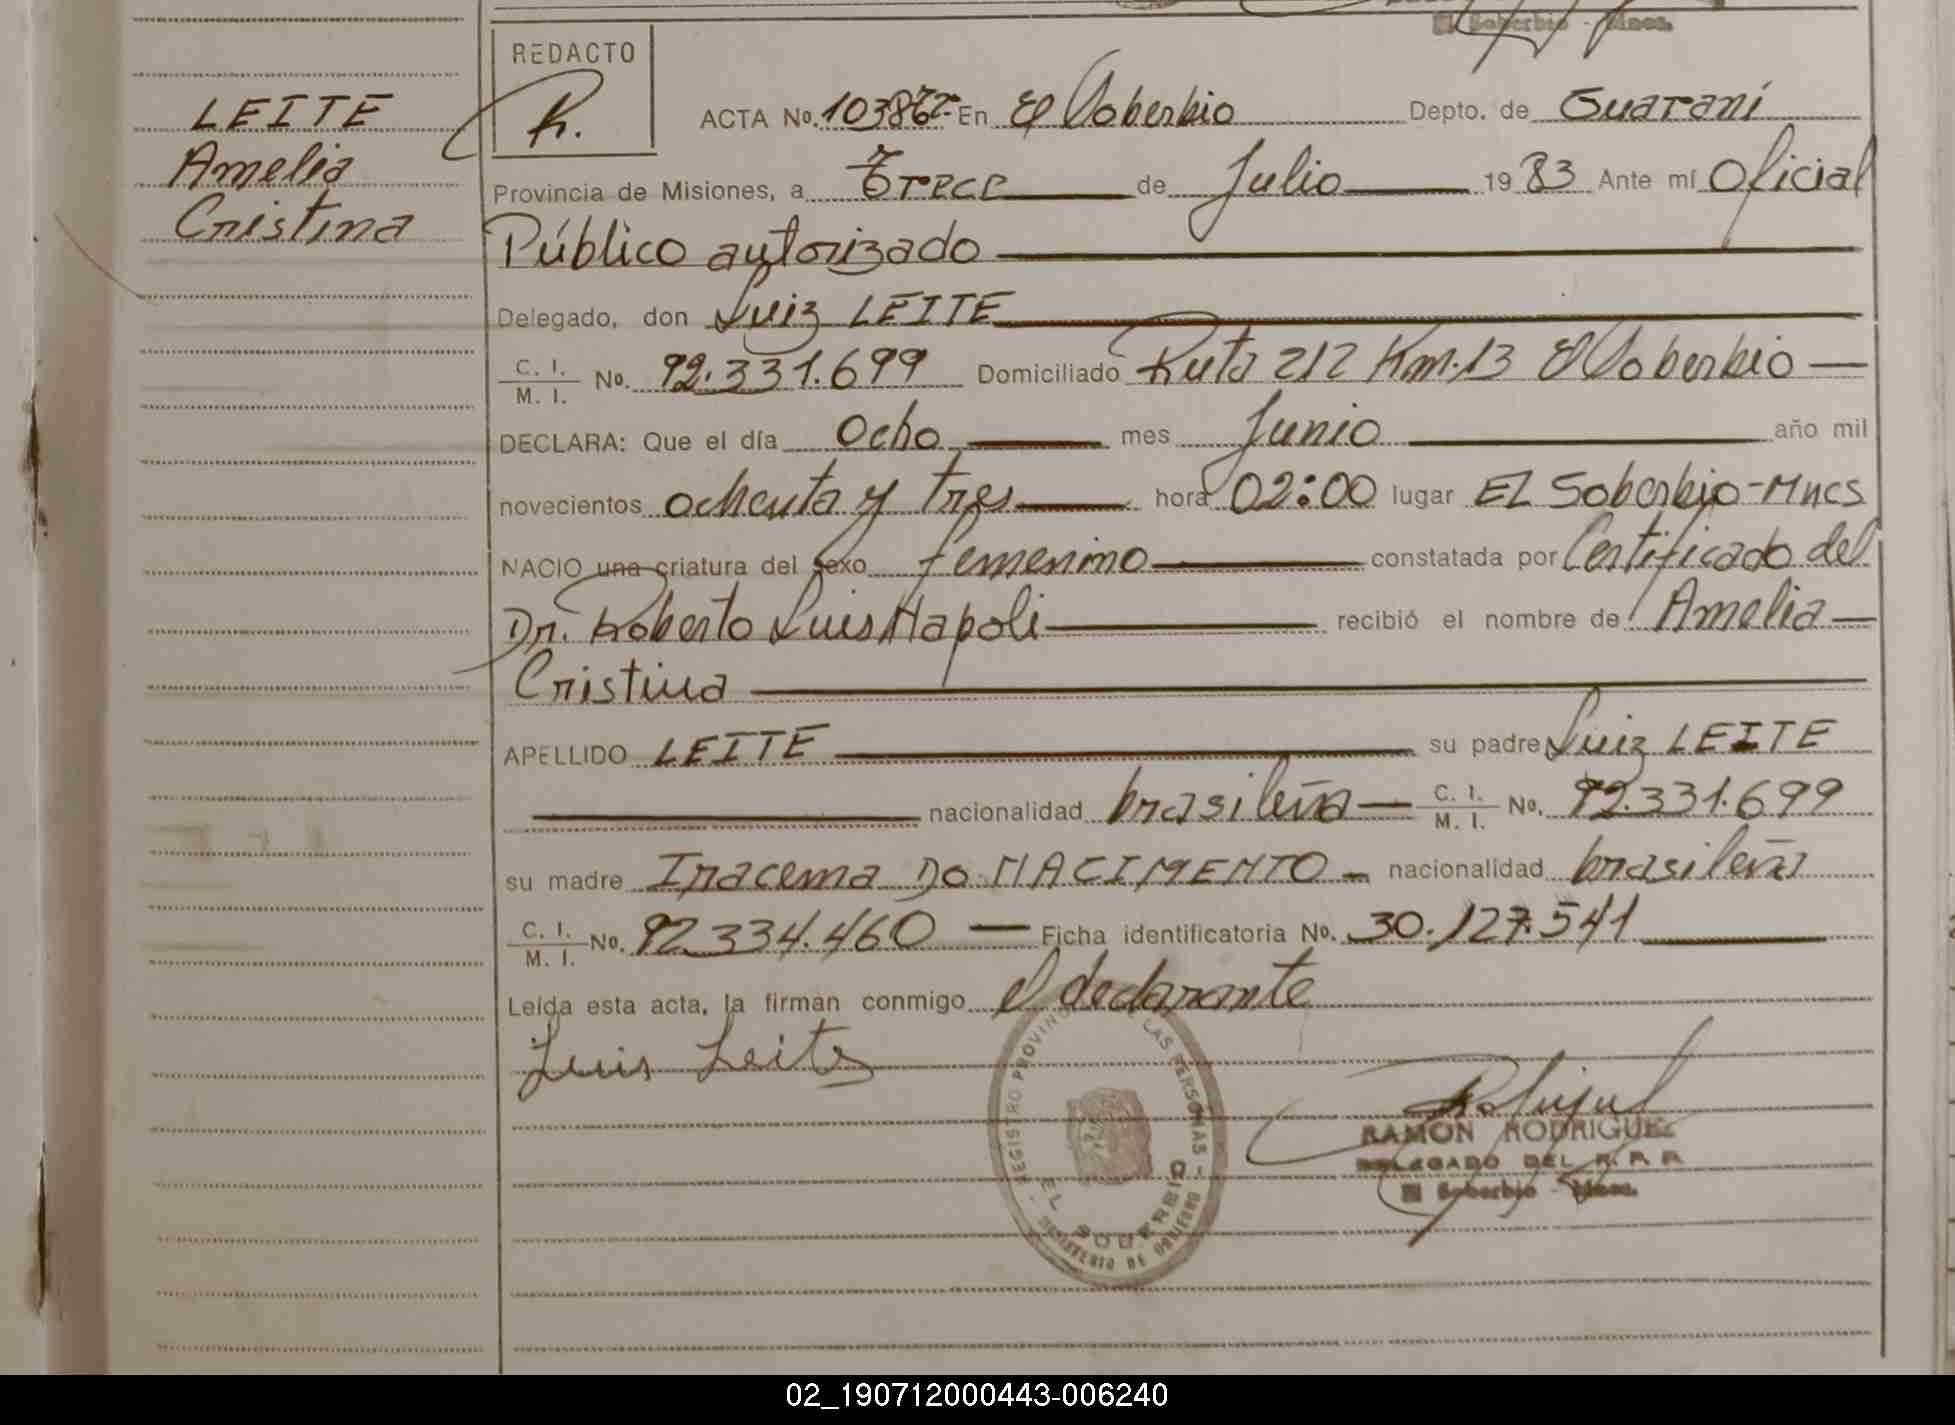 El Soberbio - Mnes.
REDACTO
R.
LEITE
Amelia
Cristina
ACTA No. En El Soberbio Depto. de Guaraní
Provincia de Misiones, a Trece de Julio 1983 Ante mí Oficial
Público autorizado
Delegado, don Luiz LEITE
C. I. / M. I. No. 92.331.699 Domiciliado Ruta 212 Km.13 El Soberbio
DECLARA: Que el día Ocho mes Junio año mil
novecientos ochenta y tres hora 02:00 lugar EL Soberbio-Mnes
NACIO una criatura del sexo femenino constatada por Certificado del
Dr. Roberto Luis Napoli recibió el nombre de Amelia
Cristina
APELLIDO LEITE su padre Luiz LEITE
nacionalidad brasileña C. I. / M. I. No. 92.331.699
su madre Iracema DO NACIMENTO nacionalidad brasileña
C. I. / M. I. No. 92.334.460 Ficha identificatoria No. 30.127.541
Leída esta acta, la firman conmigo el declarante
Luis Leite
REGISTRO PROVINCIAL DE LAS PERSONAS
EL SOBERBIO
MINISTERIO DE GOBIERNO
RAMON RODRIGUEZ
DELEGADO DEL R. P. P.
El Soberbio - Mnes.
02_190712000443-006240